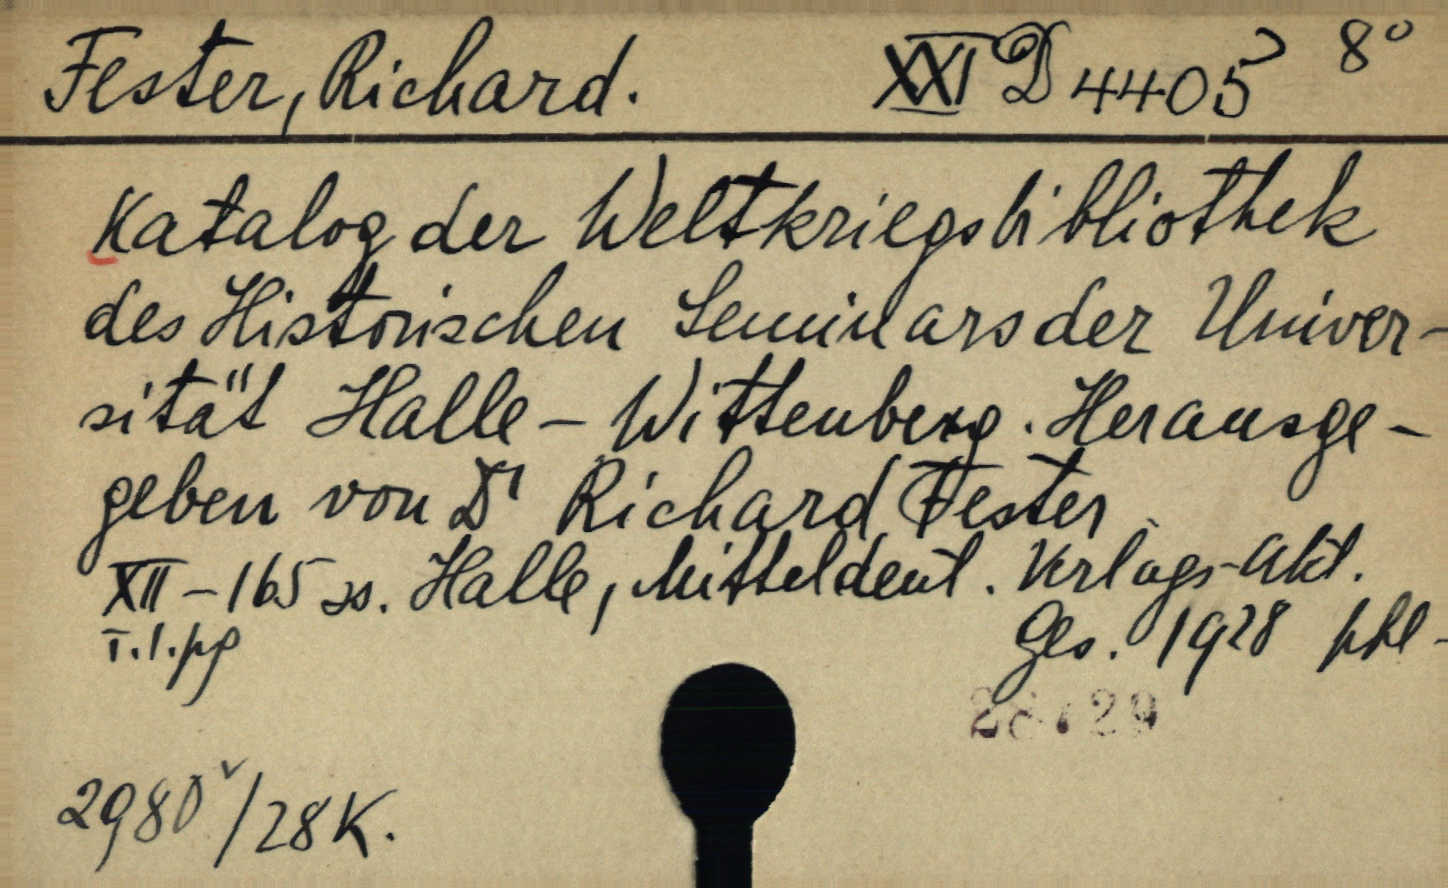 Fester, Richard. XXI D 4405 8°
Katalog der Weltkriegsbibliothek
des Historischen Seminars der Univer-
sität Halle - Wittenberg. Herausge-
geben von Dr Richard Fester
XII - 165 ss. Halle, Mitteldeut. Verlags-Akt.
Ges. 1928 ppl-
T.1.pg
2980/28K.